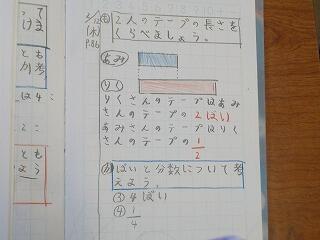 2/12
(水)
P.86
も
2人のテープの長さを
くらべましょう。
あみ
りく
りくさんのテープはあみ
さんのテープの2ばい
あみさんのテープはりく
さんのテープの1/2
ばいと分数について考
えよう。
③4ばい
④1/4